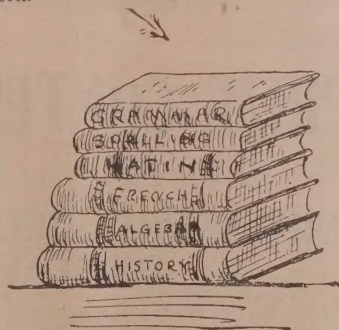 GRAMMAR
SPELLING
LATIN
FRENCH
ALGEBRA
HISTORY